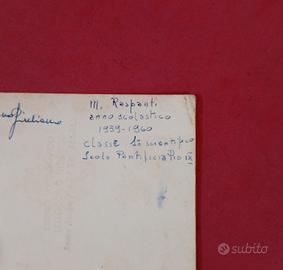 M. Raspanti
anno scolastico
1959-1960
classe 1a scientifico
Scola Pontificia Pio IX
Giuliano
subito